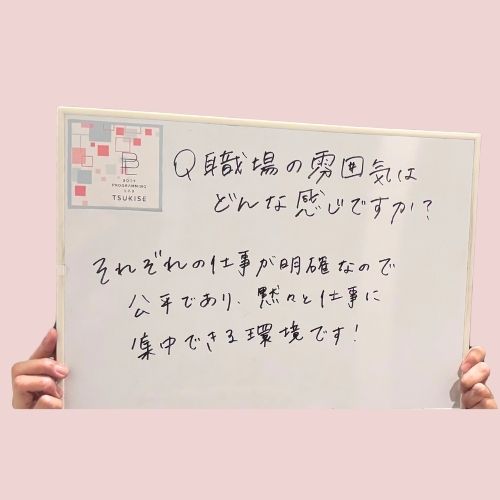 BODY
PROGRAMMING
LAB
TSUKISE
Q 職場の雰囲気は
どんな感じですか?
それぞれの仕事が明確なので
公平であり、黙々と仕事に
集中できる環境です!